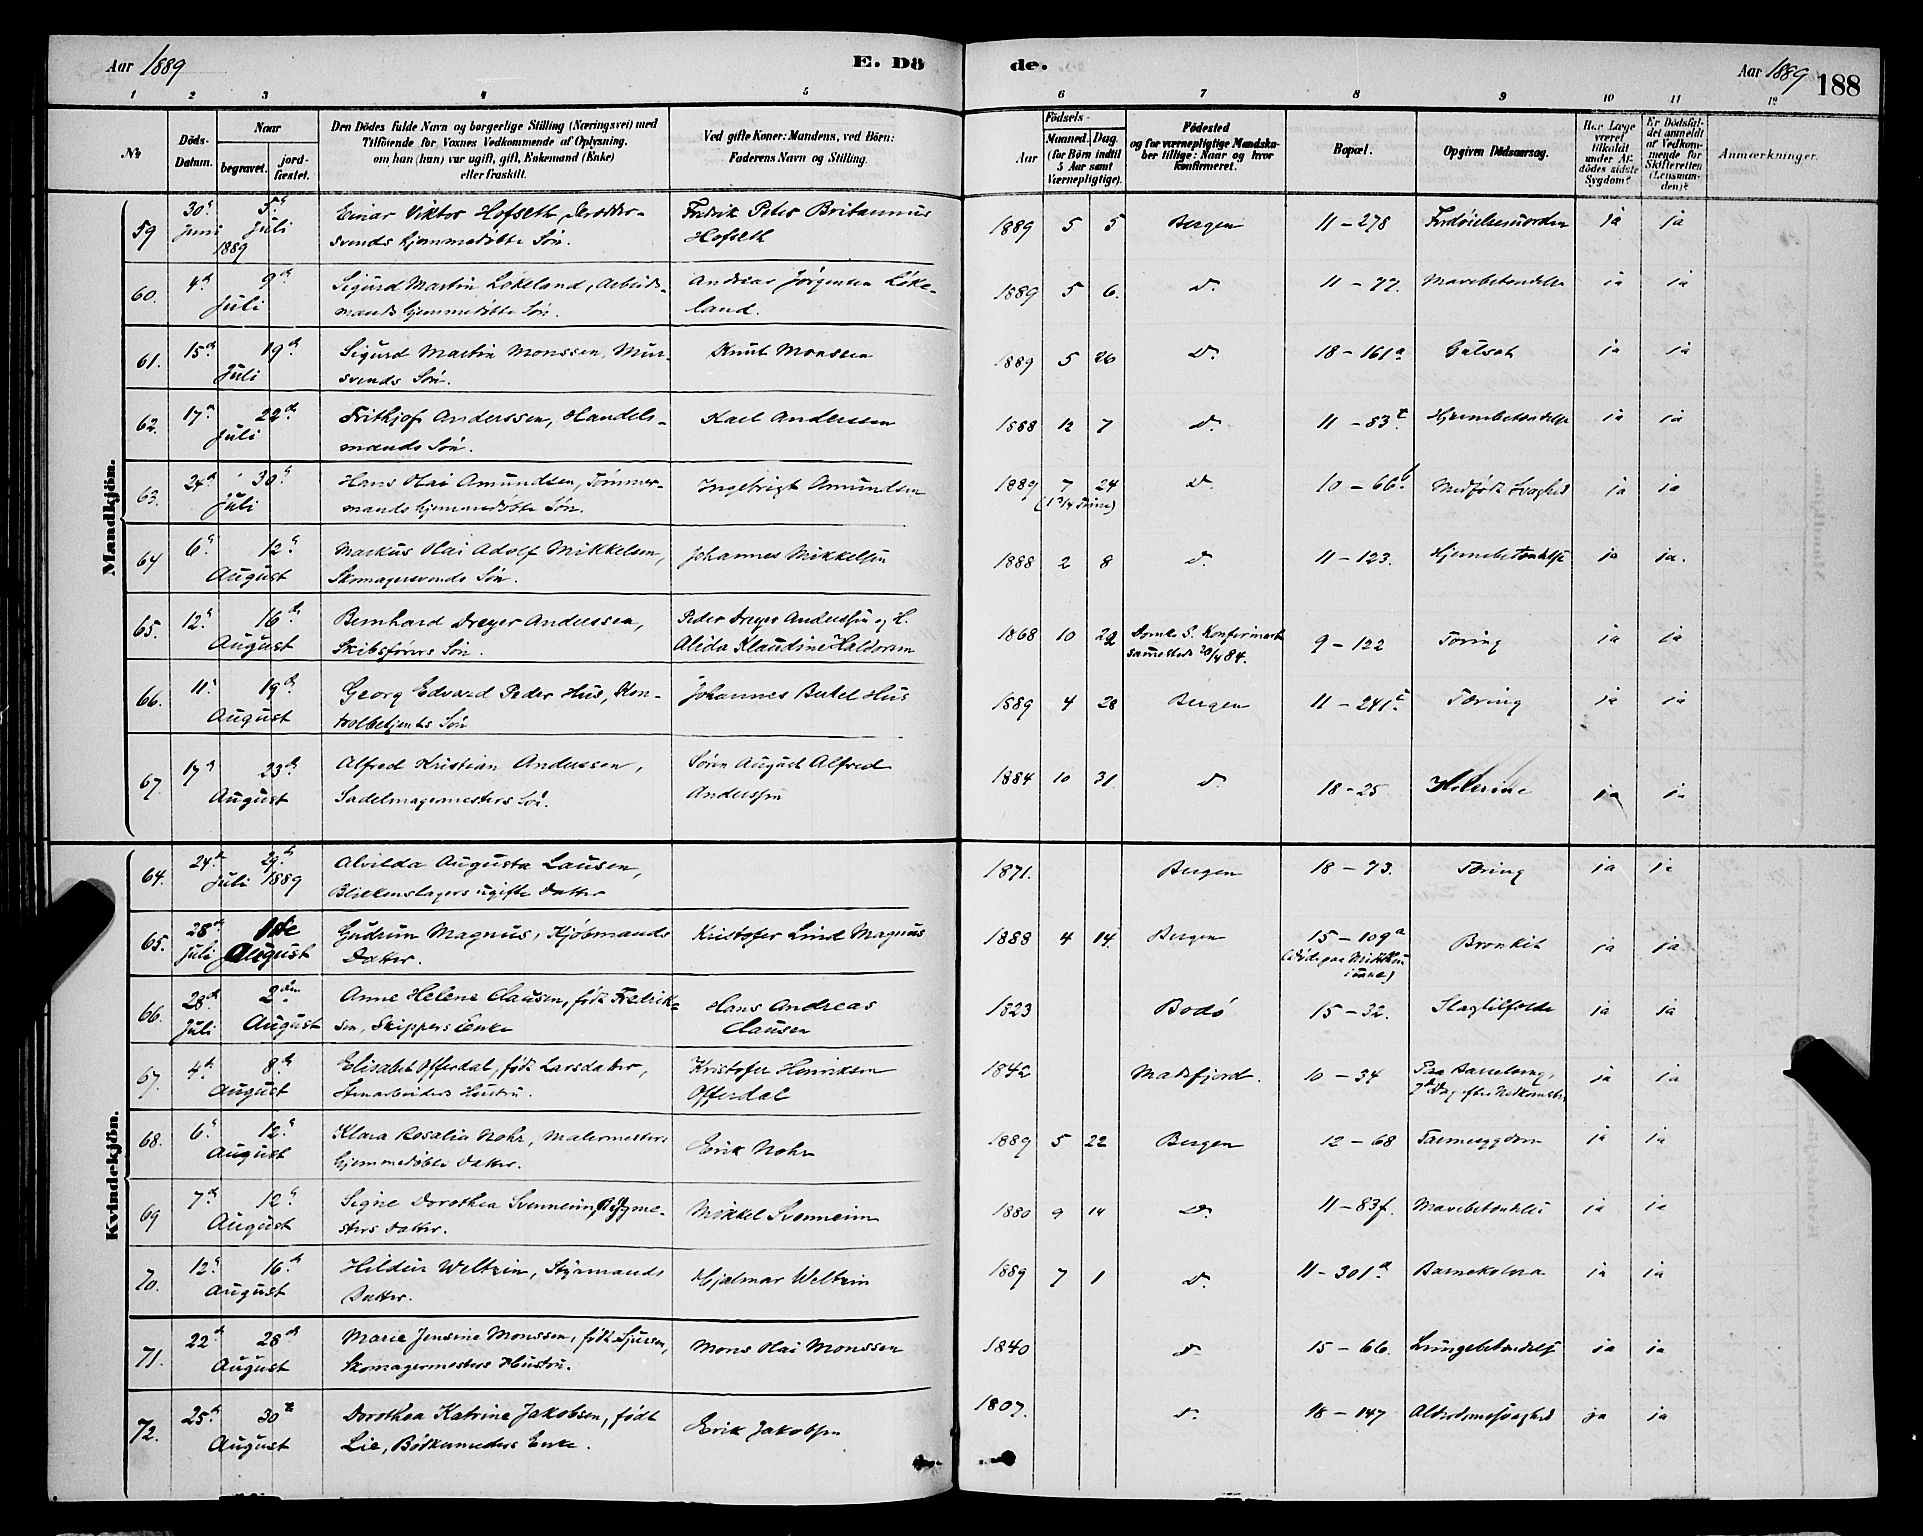 Aar 1889
E. Dö
de.
Aar 1889
188
1 2 3 4 5 6 7 8 9 10 11 12
No
Döds-Datum.
Naar
begravet.
jordfæstet.
Den Dödes fulde Navn og borgerlige Stilling (Næringsvei) med
Tilföiende for Voxnes Vedkommende af Oplysning,
om han (hun) var ugift, gift, Enkemand (Enke)
eller fraskilt.
Ved gifte Koner: Mandens, ved Börn:
Faderens Navn og Stilling.
Födsels-
Aar
Maaned. Dag.
(for Börn indtil
5 Aar samt
Værnepligtige).
Födested
og for værnepligtige Mandska-
ber tillige: Naar og hvor
konfirmeret.
Bopæl.
Opgiven Dödsaarsag.
Har Læge
været
tilkaldt
under Af-
dödes sidste
Sygdom?
Er Dödsfal-
det anmeldt
af Vedkom-
mende for
Skifteretten
(Lensman-
den)?
Anmærkninger.
Mandkjön.
59 30 Juni 5 Juli 1889 Einar Viktor Hofseth,
svends hjemmedøbte Søn.
Fredrik Peter Britannus
Hofseth
1889 5 5 Bergen 11 – 278 ja ja
60. 4 9 Juli Sigurd Martin Lokeland, Arbeids-
mands hjemmedøbte Søn.
Andreas Jörgensen Løke-
land.
1889 5 6. D. 11 – 77. Mavebetændelse ja ja
61. 15 19 Juli Sigurd Martin Monssen, Mur-
svends Søn.
Knut Monssen
1889 5 26 D. 18 – 161a Gulsot ja ja
62. 17 22 Juli Frithjof Anderssen, Handels-
mands Søn.
Karl Anderssen
1888 12 7 D. 11 – 83 Hjernebetændelse ja ja
63. 24 30 Juli Hans Kai Amundsen, Tømmer-
mands hjemmedøbte Søn.
Ingebrigt Amundsen
1889 7 24
(1 3/4 Time)
D. 10 – 66 Medfødt Svaghed ja ja
64 6 12 August Markus Kai Adolf Mikkelsen,
Skomagersvends Søn.
Johannes Mikkelsen
1888 2 8 D. 11 – 123. Hjernebetændelse ja ja.
65. 12 16 August Bernhard Dreyer Anderssen,
Skibsførers Søn.
Peder Dreyer Anderssen og H.
Alida Klaudine Haldorsen
1868 10 22 Domk. S. Konfirmeret
sammesteds 20/4 84.
9 – 122 Tæring ja ja
66. 11 19 August Georg Edvard Peder Hus, Kon-
trolbetjents Søn
Johannes Bertel Hus
1889 4 28 Bergen 11 – 241 Tæring ja ja
67. 17 23 August Alfred Kristian Anderssen,
Sadelmagermesters Søn.
Søren August Alfred
Anderssen
1884 10 31 D. 18 – 25 ja ja
Kvindekjön.
64. 24 Juli 29 1889 Alvilda Augusta Lausen,
Blikkenslagers ugifte Datter
1871. Bergen 18 – 73. Tæring ja ja
65. 28 Juli 1ste August Gudrun Magnus, Kjøbmands
Datter.
Kristofer Lind Magnus
1888 4 14 Bergen 15 – 109a
Bronkit ja ja
66. 28 Juli 2den August Anne Helene Clausen, født Fredrik-
sen, Skippers Enke
Hans Andreas
Clausen
1823 Bodø 15 – 32. Slagtilfælde ja ja
67. 4 8 August Elisabet Offerdal, født Larsdatter,
Stenarbeiders Hustru.
Kristofer Henriksen
Offerdal
1842 Masfjord. 10 – 34 Paa Barselseng,
7de Dag efter Nedkomsten
ja ja
68. 6 12 August Klara Rosalia Nohr, Malermesters
hjemmedøbte Datter.
Erik Nohr
1889 5 22 Bergen 12 – 68 Tarmesygdom ja ja
69 7 12 August Signe Dorothea Svenneim,
sters Datter.
Mikkel Svenneim
1880 9 14 D. 11 – 83f. Mavebetændelse ja ja
70. 12 16 August Hildur Weltzin, Styrmands
Datter.
Hjalmar Weltzin
1889 7 1 D. 11 – 301a Barnekolera ja ja
71. 22 28 August Marie Jensine Monssen, født Sjursen,
Skomagermesters Hustru.
Mons Kai Monssen
1840 D. 15 – 66. Lungebetændelse ja ja
72. 25 30 August Dorothea Katrine Jakobsen, født
Lie, Bødkermesters Enke.
Erik Jakobsen
1807. D. 18 – 147 Alderdomssvaghed ja ja